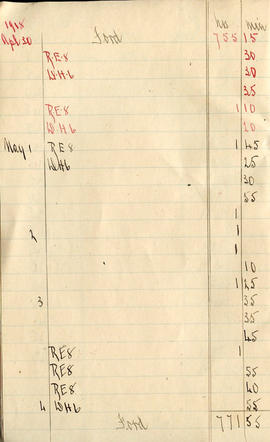 1918 hrs min
Apl 30 Ford 755 15
RE8 30
WH6 30
35
RE8 1 10
WH6 10
May 1 RE8 1 45
WH6 25
30
55
1
2 1
1
10
1 25
3 35
35
45
RE8 1
RE8 55
RE8 40
4 WH6 55
Ford 771 55